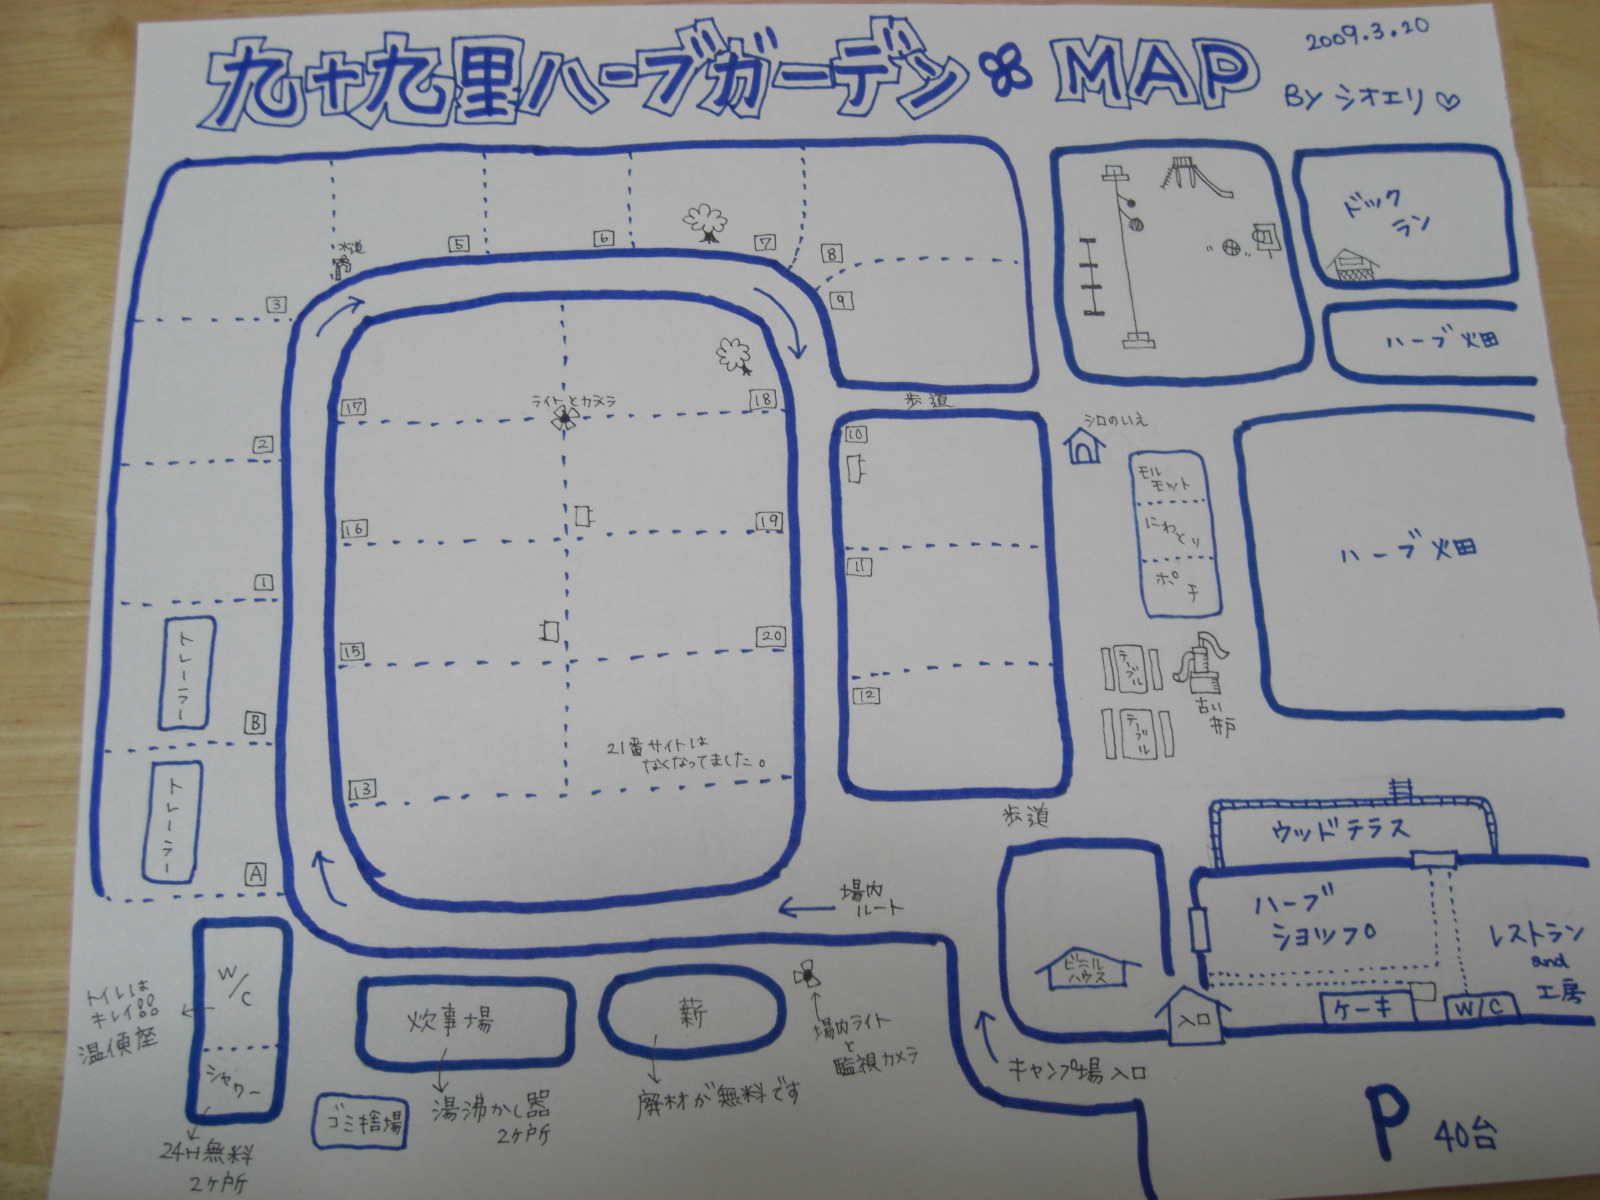 九十九里ハーブガーデン MAP
2009.3.20
By シオエリ♡
水道
5
6
7
8
9
3
2
1
B
A
トレーラー
トレーラー
17
18
ライトとカメラ
16
19
15
20
13
21番サイトは
なくなってました。
歩道
10
11
12
歩道
ドック
ラン
ハーブ畑
ハーブ畑
シロのいえ
モル
モット
にわとり
ポチ
テーブル
テーブル
古い
井戸
ウッドテラス
ハーブ
ショップ
レストラン
and
工房
ケーキ
W/C
入口
ビニール
ハウス
キャンプ場入口
P 40台
場内
ルート
場内ライト
と
監視カメラ
薪
廃材が無料です
炊事場
湯沸かし器
2ヶ所
ゴミ捨場
W/C
シャワー
トイレは
キレイ
温便座
24H無料
2ヶ所